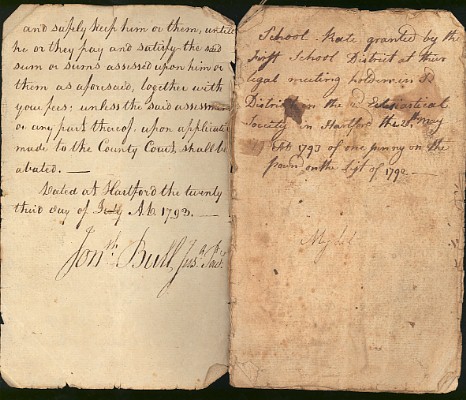 and safely keep him or them, until
he or they pay and satisfy the said
sum or sums assessed upon him or
them as aforesaid, together with
your fees; unless the said assessm
or any part thereof upon applicati
made to the County Court, shall be
abated. —
Dated at Hartford the twenty
third day of July A.D. 1793. —
Jonth Bull, Jus. Pac.
School Rate granted by the
First School District at their
legal meeting holden in sd
District in the 2d Eclesiastical
Society in Hartford the May
AD 1793 of one penny on the
pound on the list of 1792 —